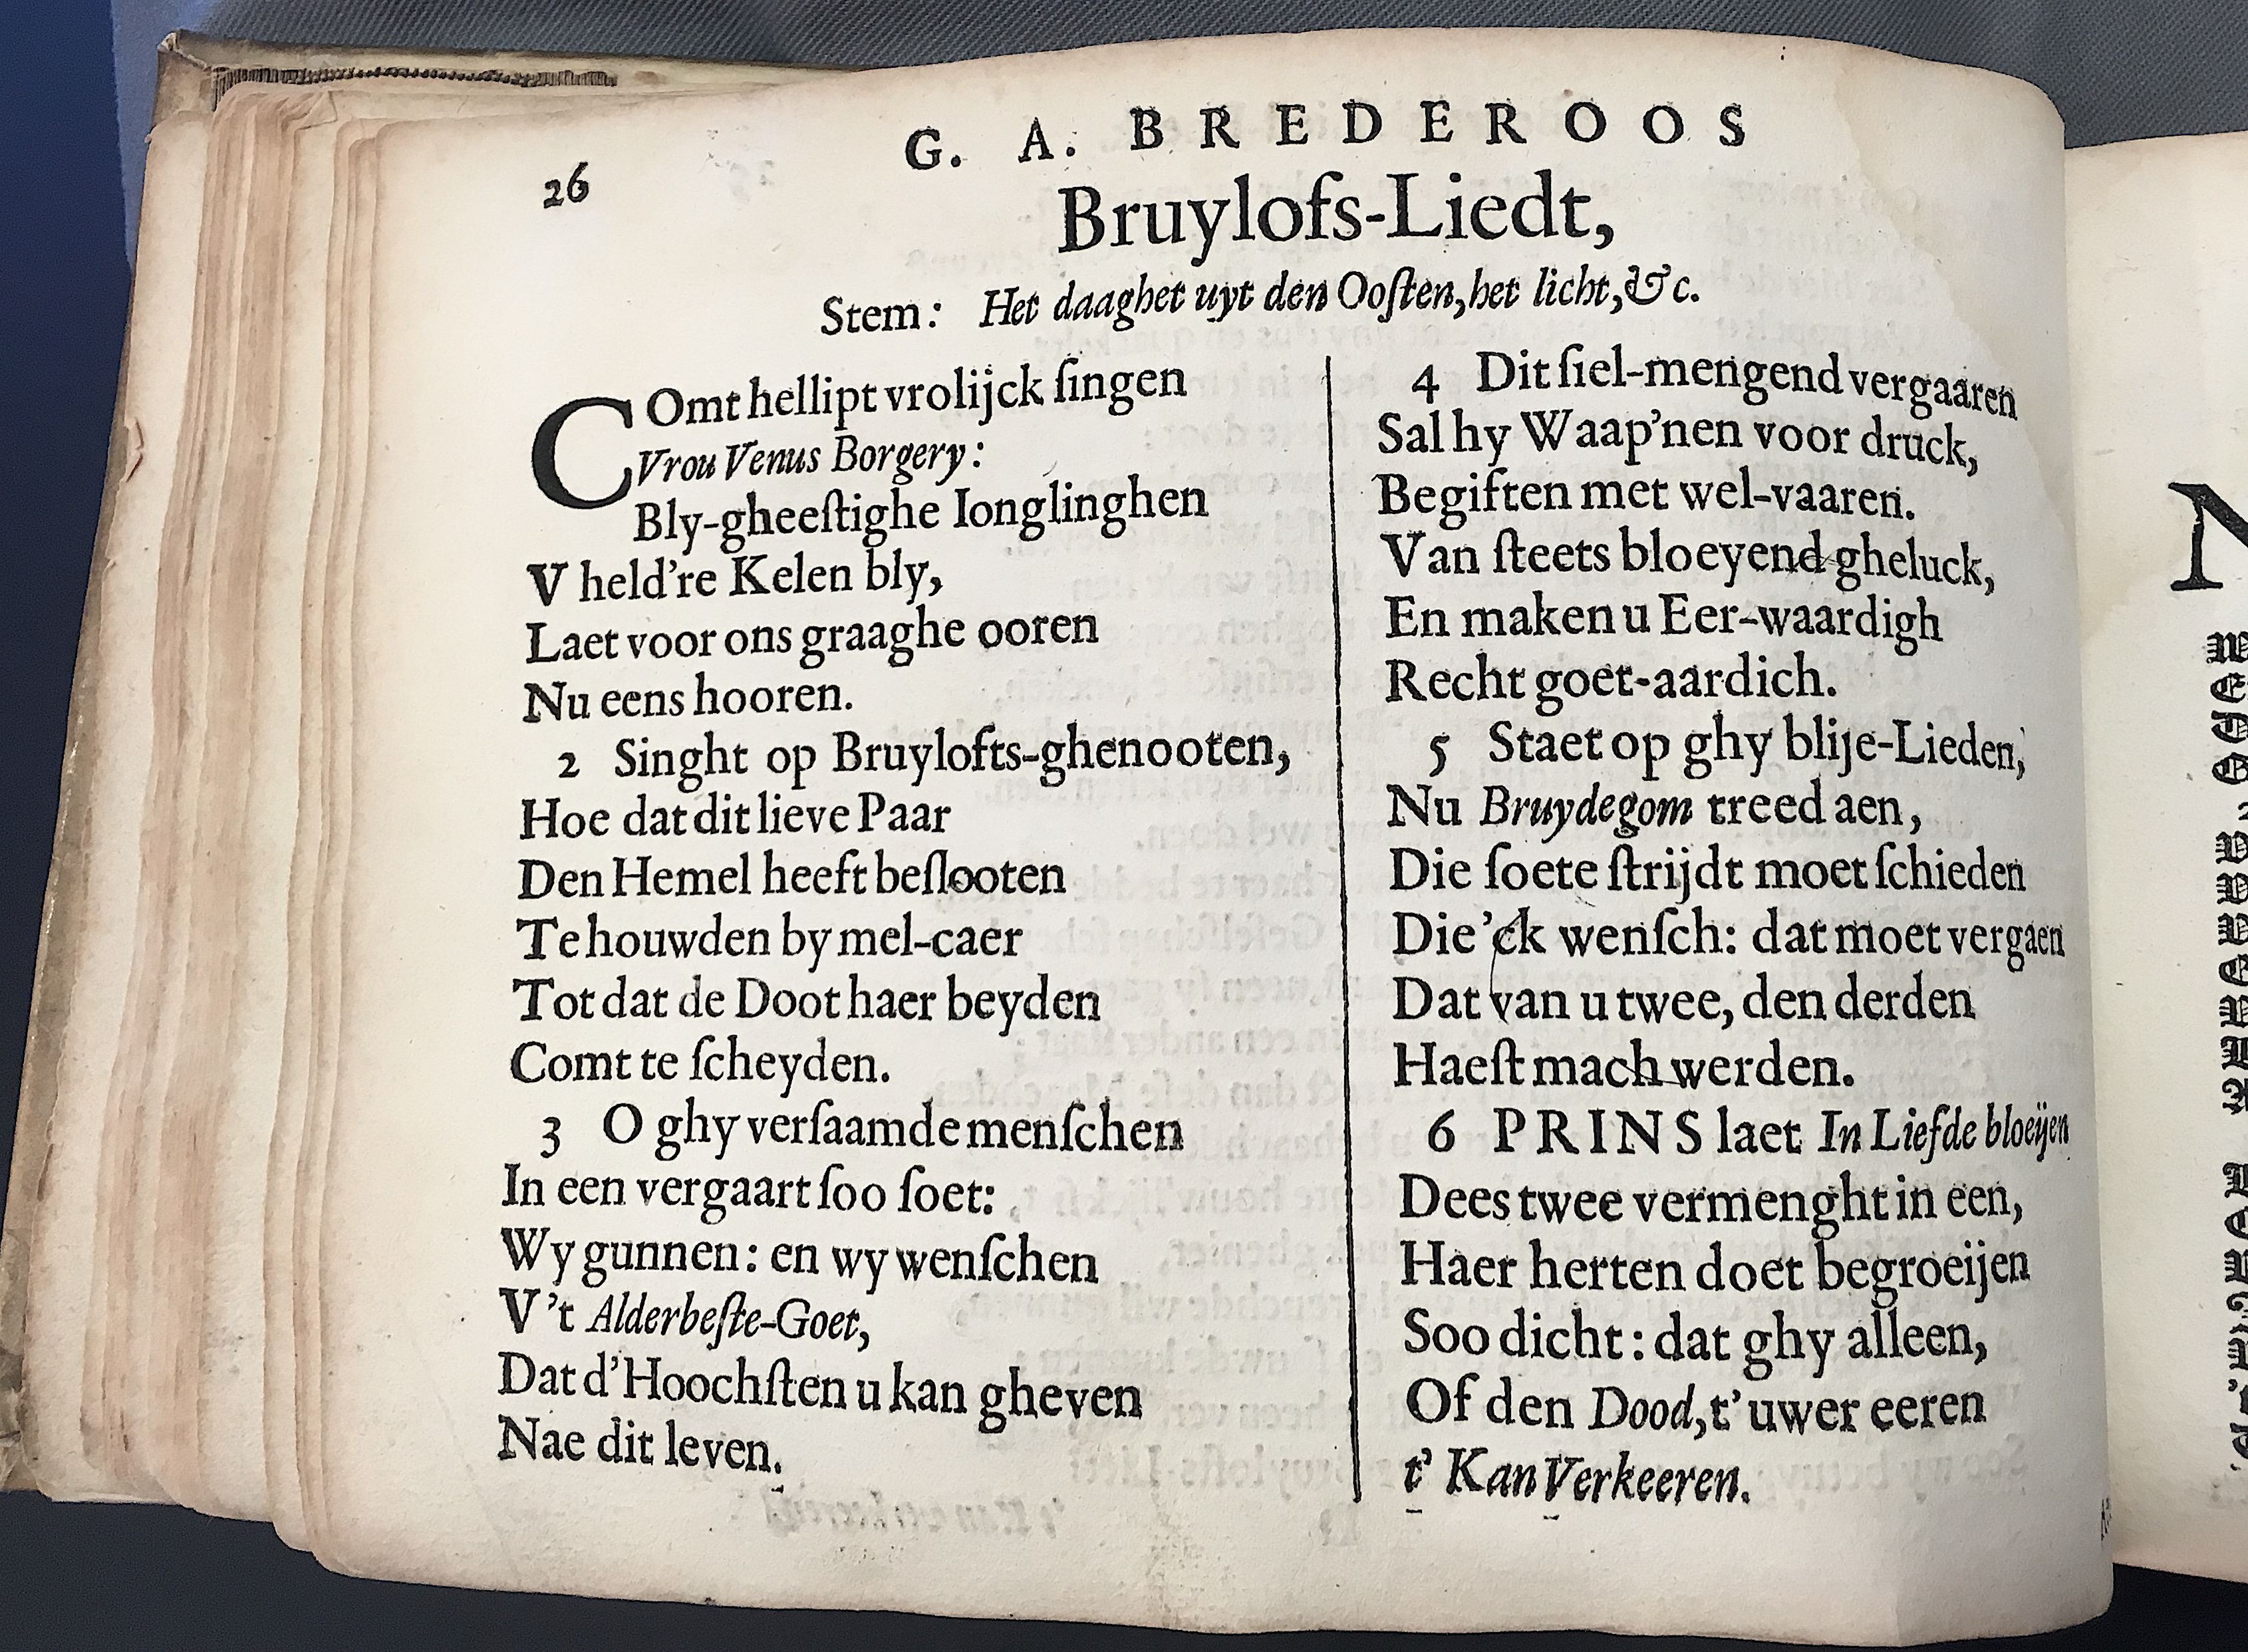 G. A. BREDEROOS
26
Bruylofs-Liedt,
Stem: Het daaghet uyt den Ooſten, het licht, &c.
COmt hellipt vrolijck ſingen
Vrou Venus Borgery:
Bly-gheeſtighe Ionglinghen
V held're Kelen bly,
Laet voor ons graaghe ooren
Nu eens hooren.
2 Singht op Bruylofts-ghenooten,
Hoe dat dit lieve Paar
Den Hemel heeft beſlooten
Te houwden by mel-caer
Tot dat de Doot haer beyden
Comt te ſcheyden.
3 O ghy verſaamde menſchen
In een vergaart ſoo ſoet:
Wy gunnen: en wy wenſchen
V 't Alderbeſte-Goet,
Dat d'Hoochſten u kan gheven
Nae dit leven.
4 Dit ſiel-mengend vergaaren
Sal hy Waap'nen voor druck,
Begiften met wel-vaaren.
Van ſteets bloeyend gheluck,
En maken u Eer-waardigh
Recht goet-aardich.
5 Staet op ghy blije-Lieden,
Nu Bruydegom treed aen,
Die ſoete ſtrijdt moet ſchieden
Die 'ck wenſch: dat moet vergaen
Dat van u twee, den derden
Haeſt mach werden.
6 PRINS laet In Liefde bloeijen
Dees twee vermenght in een,
Haer herten doet begroeijen
Soo dicht: dat ghy alleen,
Of den Dood, t' uwer eeren
t' Kan Verkeeren.
N